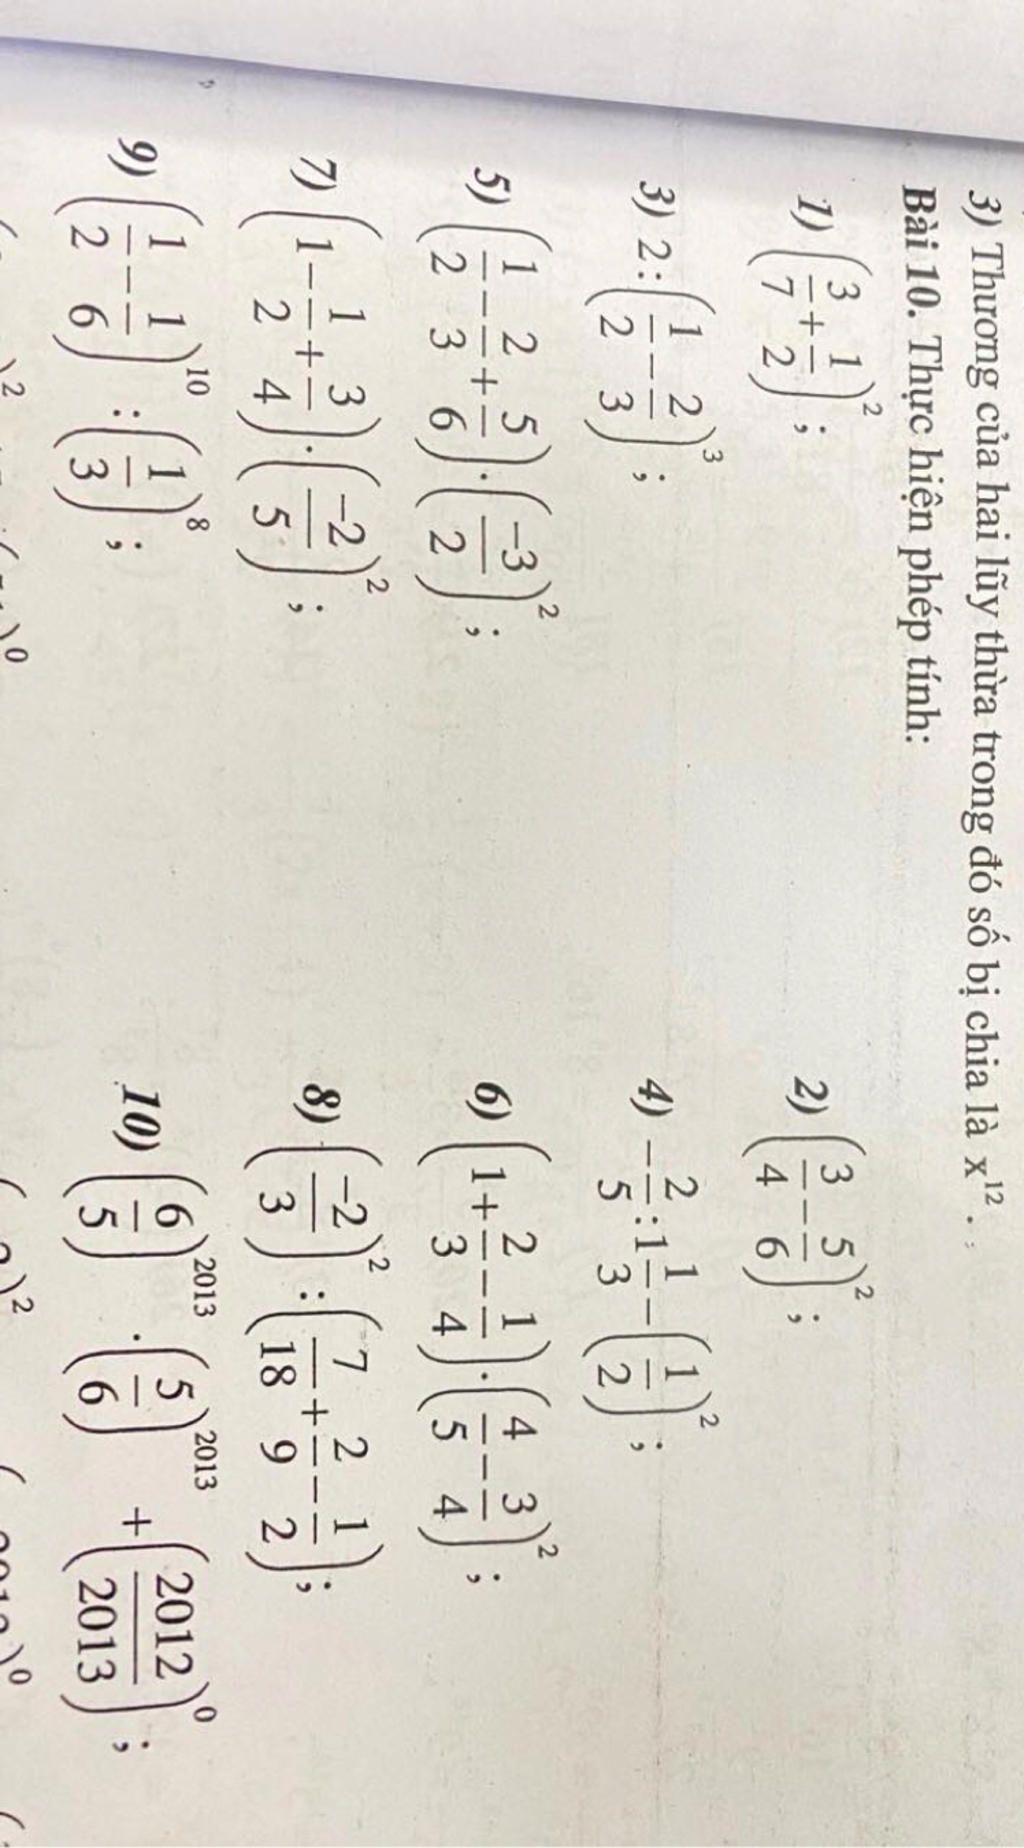 3) Thương của hai lũy thừa trong đó số bị chia là x¹².
Bài 10. Thực hiện phép tính:
1) (3/7 + 1/2)² ; 2) (3/4 − 5/6)² ;
3) 2 : (1/2 − 2/3)³ ; 4) −2/5 : 1 1/3 − (1/2)² ;
5) (1/2 − 2/3 + 5/6) . (−3/2)² ; 6) (1 + 2/3 − 1/4) . (4/5 − 3/4)² ;
7) (1 − 1/2 + 3/4) . (−2/5)² ; 8) (−2/3)² : (7/18 + 2/9 − 1/2) ;
9) (1/2 − 1/6)¹⁰ : (1/3)⁸ ; 10) (6/5)²⁰¹³ . (5/6)²⁰¹³ + (2012/2013)⁰ ;